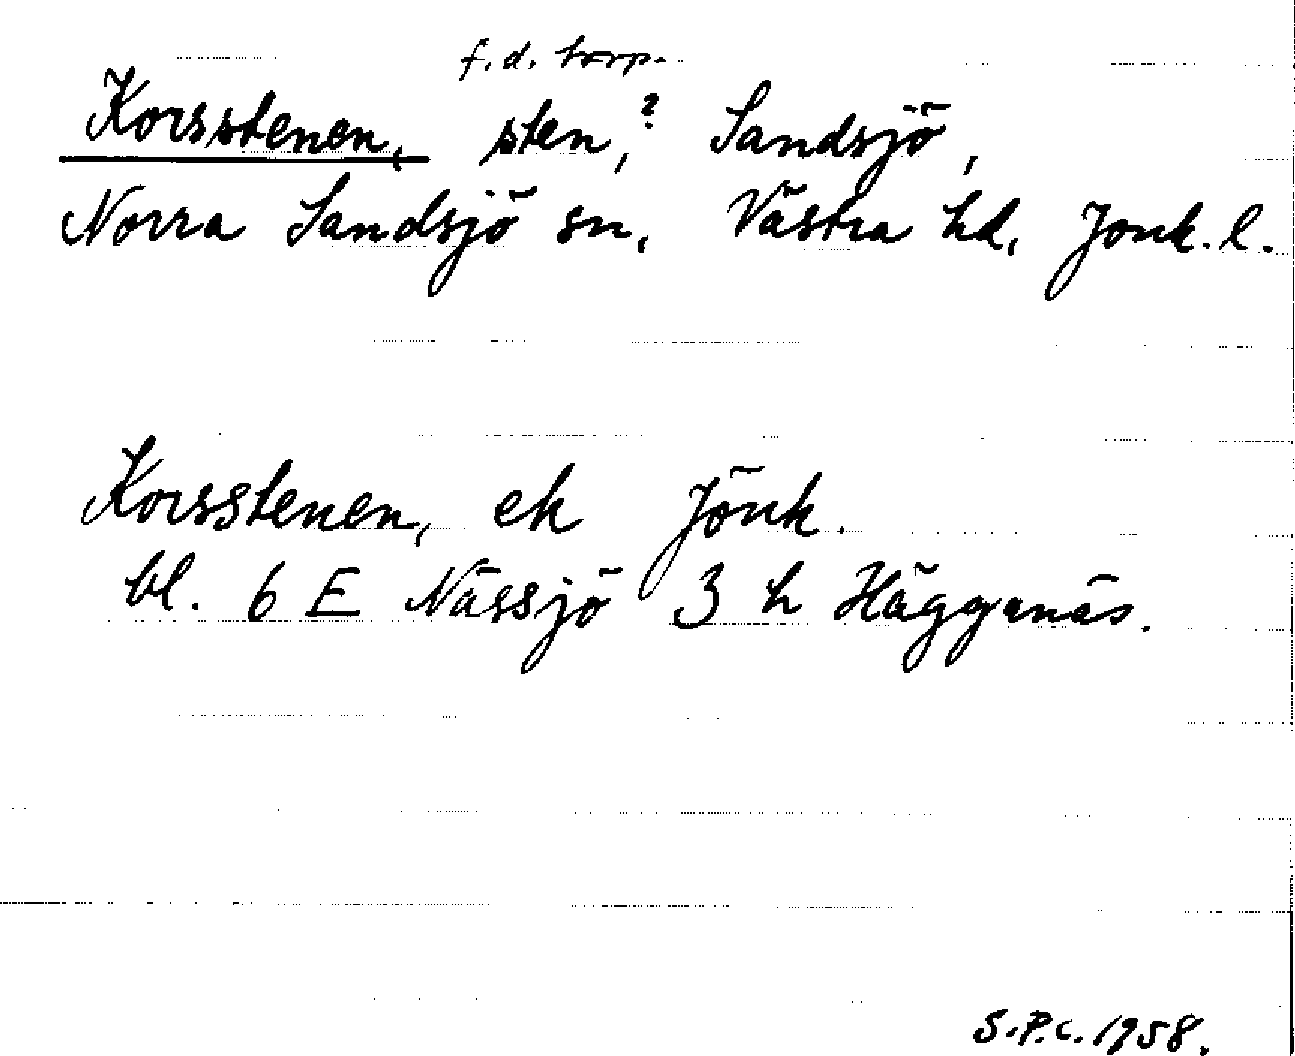 f.d. torp.
Korsstenen, sten,? Sandsjö,
Norra Sandsjö sn, Västra hd, Jönk. l.
Korsstenen, ek Jönk.
bl. 6 E Nässjö 3 h Hägganäs.
S.P.C. 1958.